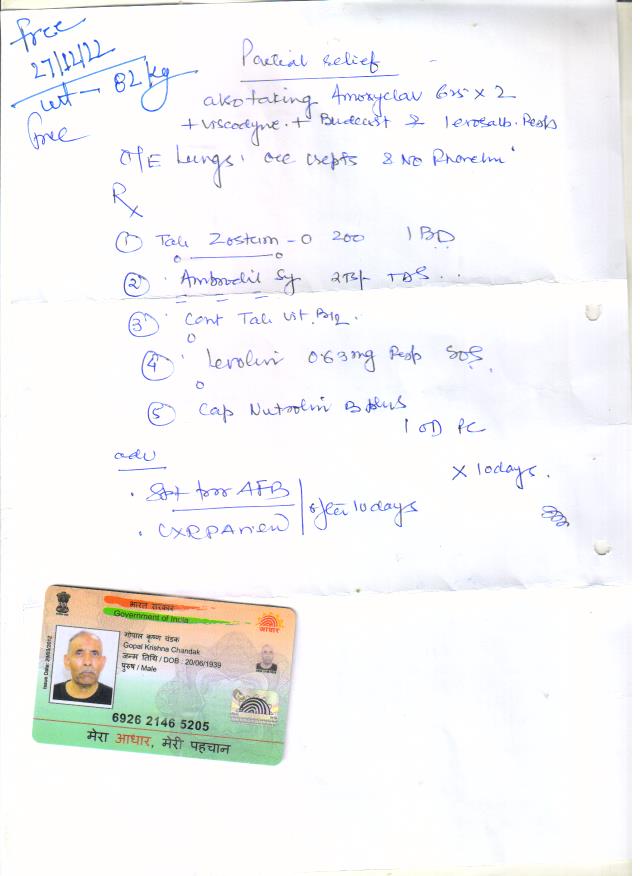 free
27/12/22
wt - 82 kg
free
Partial relief
also taking Amoxyclav 625 x 2
+ viscodyne + Budecort & levosalb. Resp
O/E Lungs: occ crepts & NO Rhonchi
Rx
① Tab Zostum-O 200 1 BD
② Ambrodil Sy 2TSf TDS
③ Cont Tab vit. B12.
④ Levolin 0.63mg Resp SOS.
⑤ Cap Nutrolin B plus
1 OD PC
x 10days.
adv
. Spt for AFB
. CXR PA view
after 10 days
भारत सरकार
Government of India
आधार
Issue Date: 29/03/2012
गोपाल कृष्ण चंडक
Gopal Krishna Chandak
जन्म तिथि / DOB : 20/06/1939
पुरुष / Male
6926 2146 5205
मेरा आधार, मेरी पहचान